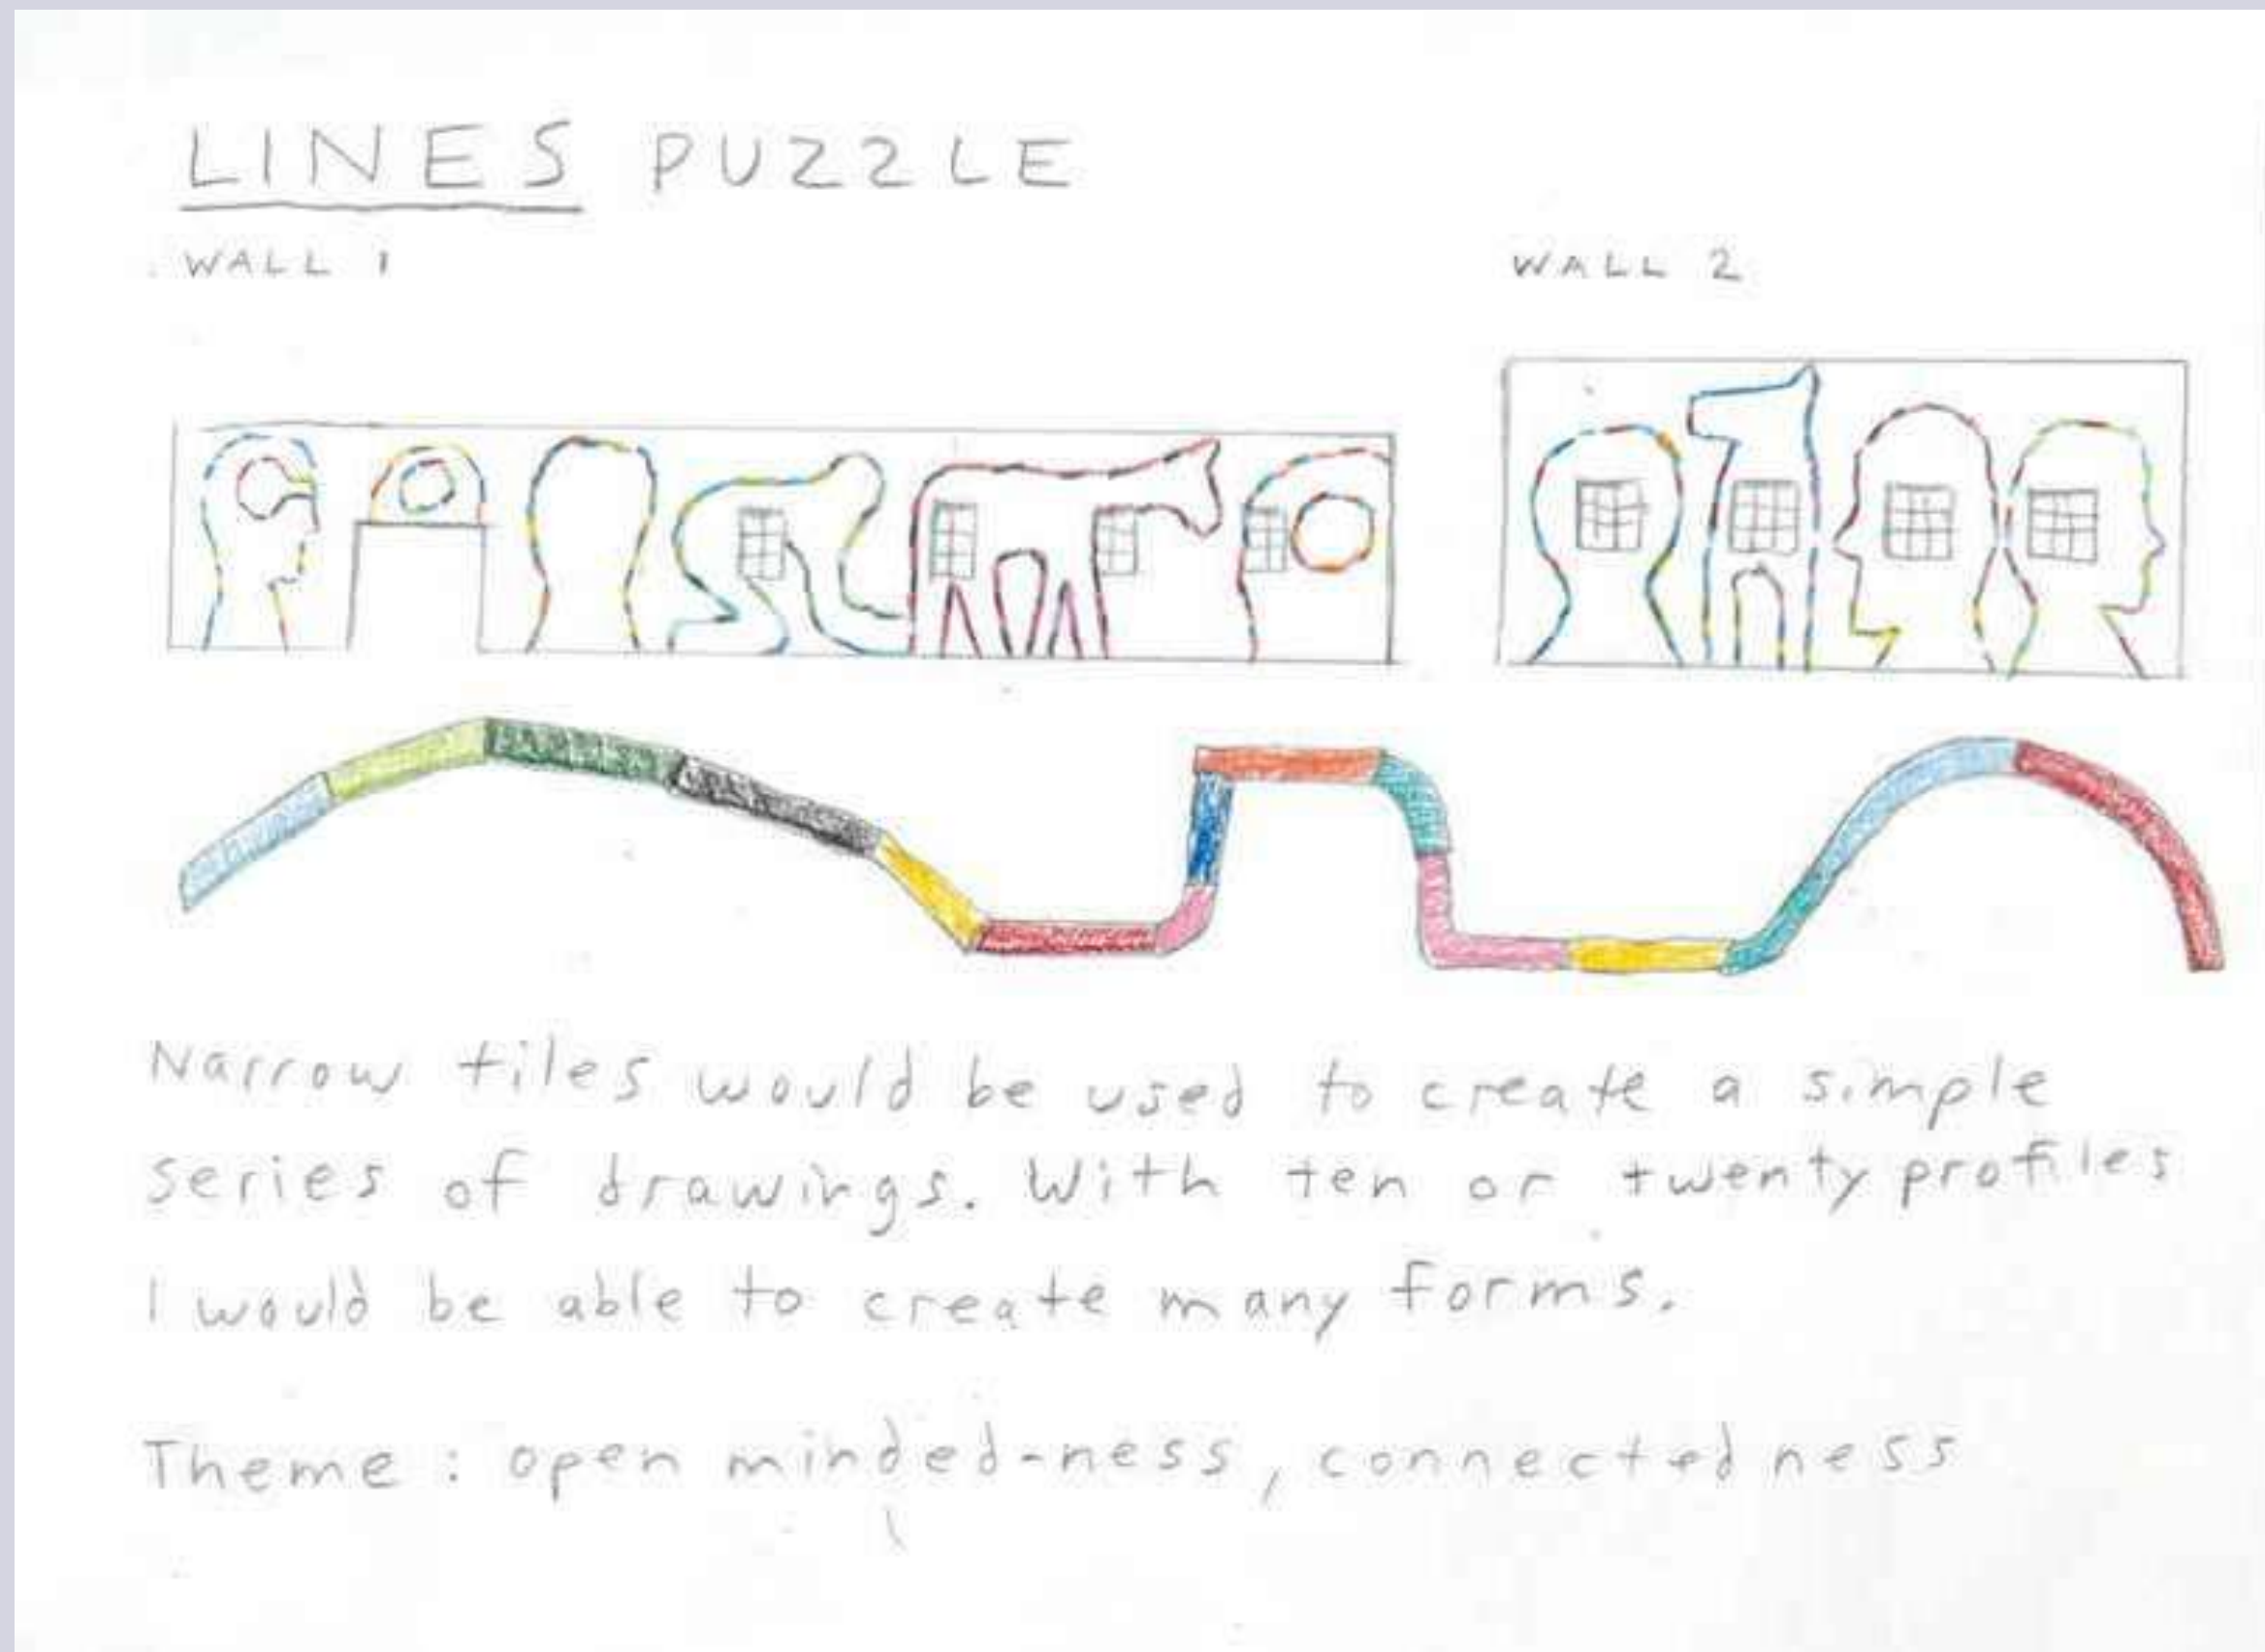 LINES PUZZLE
WALL 1
WALL 2
Narrow tiles would be used to create a simple
series of drawings. With ten or twenty profiles
I would be able to create many forms.
Theme : open minded-ness, connectedness